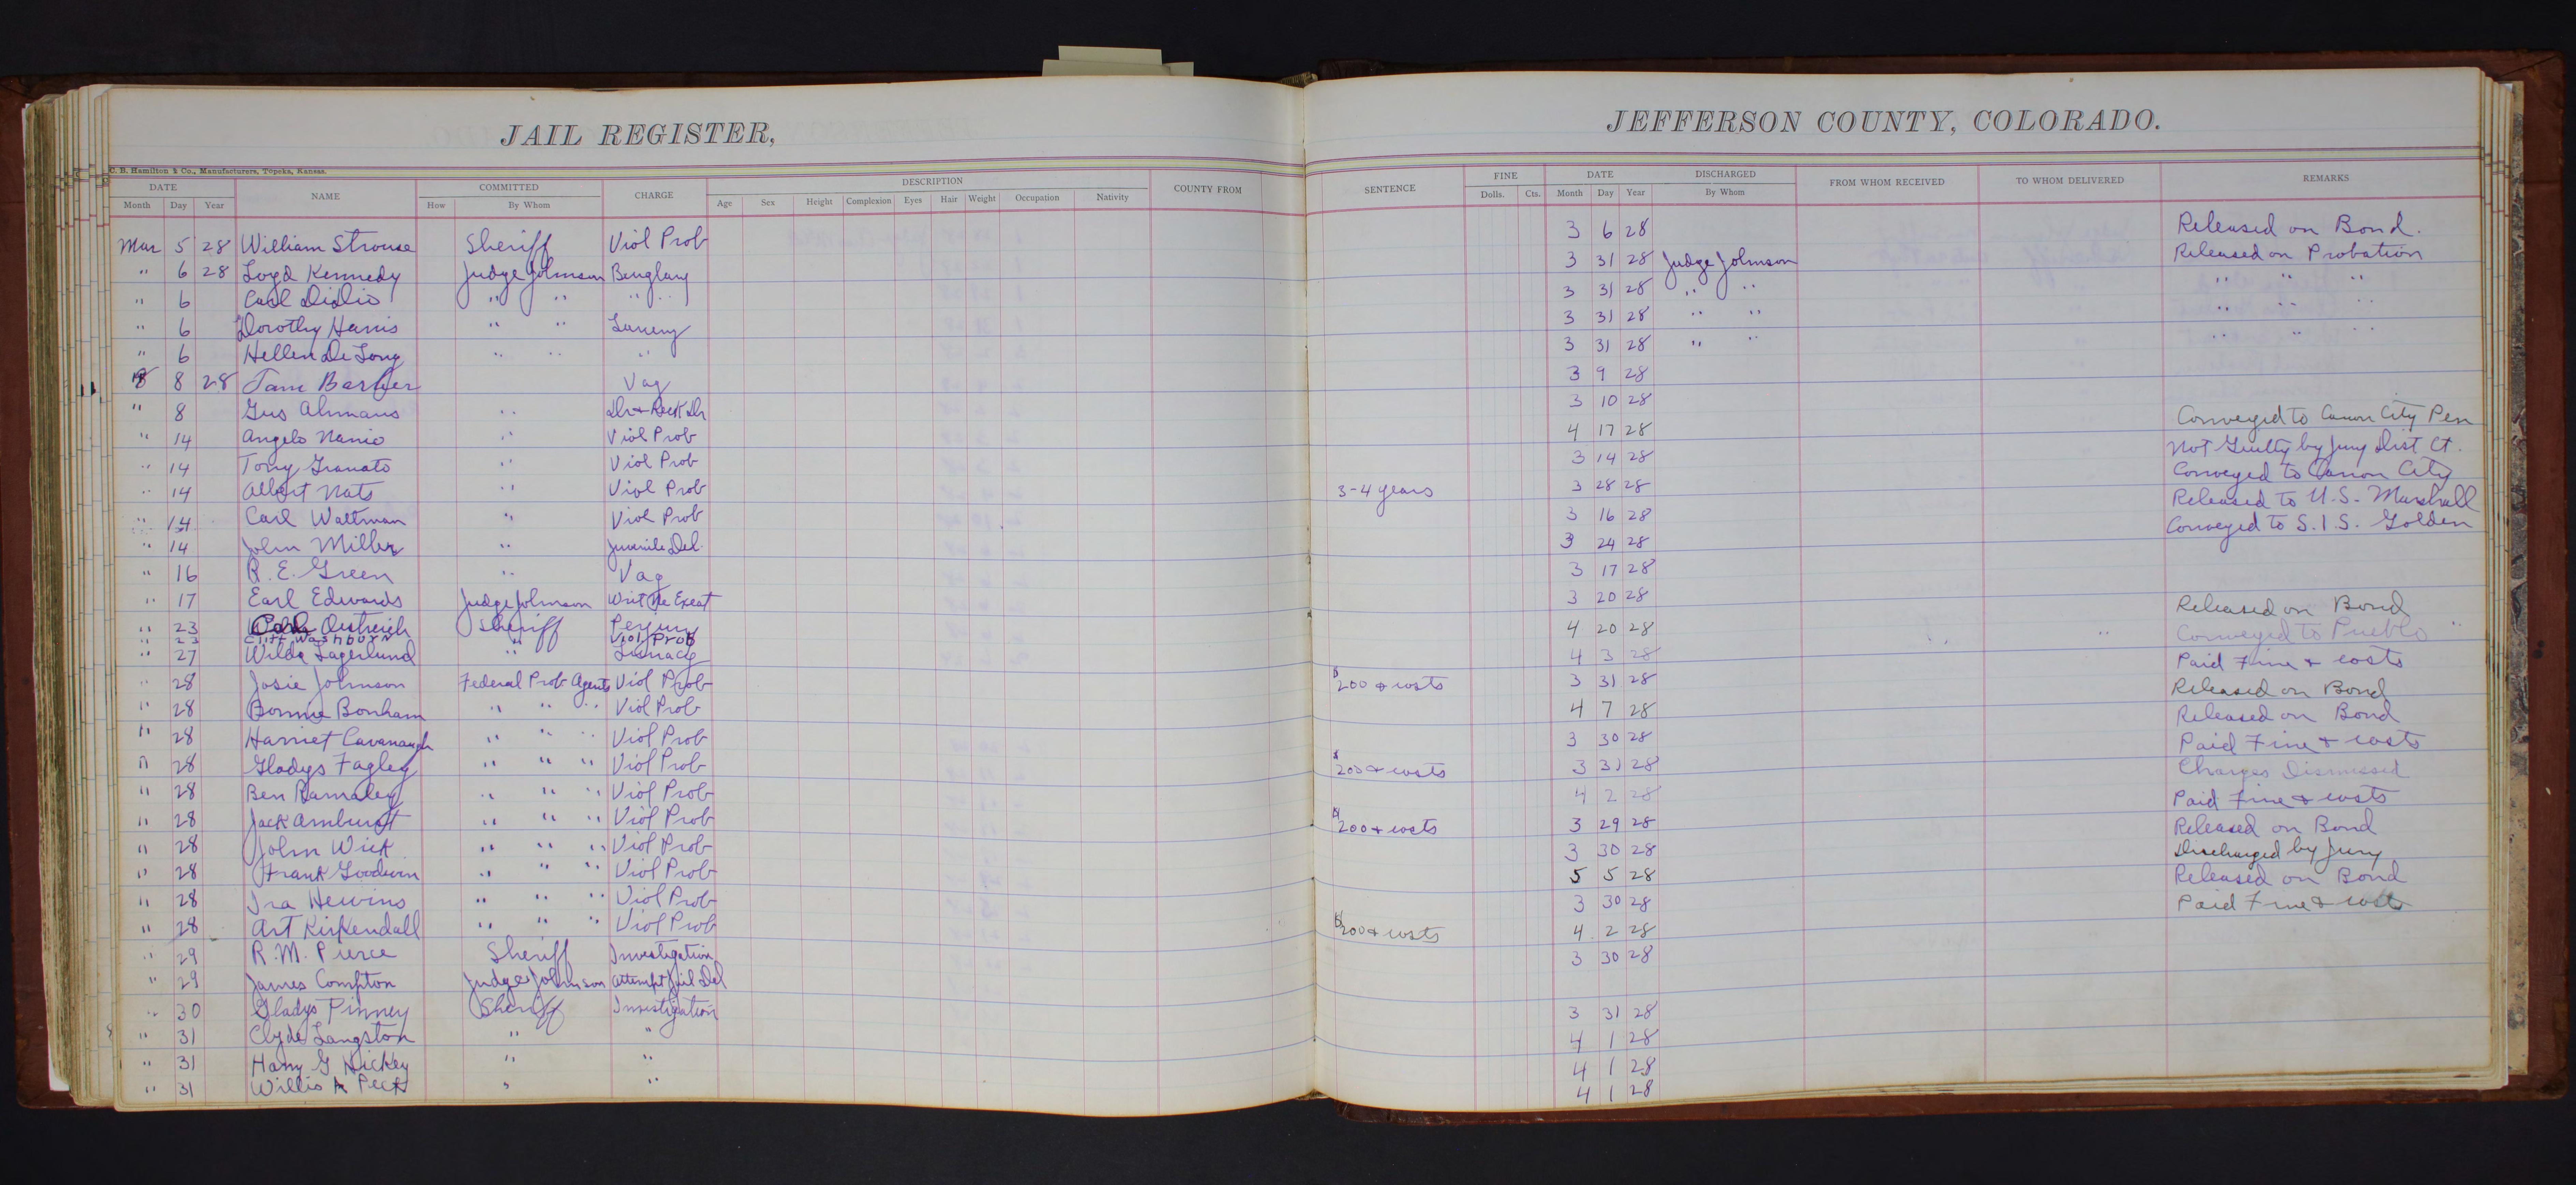 JAIL REGISTER,
JEFFERSON COUNTY, COLORADO.
C. B. Hamilton & Co., Manufacturers, Topeka, Kansas.
DATE NAME COMMITTED CHARGE DESCRIPTION COUNTY FROM SENTENCE FINE DATE DISCHARGED FROM WHOM RECEIVED TO WHOM DELIVERED REMARKS
Month Day Year How By Whom Age Sex Height Complexion Eyes Hair Weight Occupation Nativity Dolls. Cts. Month Day Year By Whom
Mar 5 28 William Strouse Sheriff Viol Prob 3 6 28 Released on Bond.
" 6 28 Loyd Kennedy Judge Johnson Burglary 3 31 28 Judge Johnson Released on Probation
" 6 Carl DiDio " " " " 3 31 28 " " " " "
" 6 Dorothy Harris " " Larceny 3 31 28 " " " " "
" 6 Hellen De Long " " " 3 31 28 " " " " "
8 28 Barber Vag 3 9 28
" 8 Gus " Dr + Reck Dr 3 10 28
" 14 Angelo Nanio " Viol Prob 4 17 28 Conveyed to Canon City Pen
" 14 Tony Granato " Viol Prob 3 14 28 Not Guilty by Jury Dist Ct.
" 14 Albert Nats " Viol Prob 3-4 years 3 28 28 Conveyed to Canon City
" 14 Carl Waltman " Viol Prob 3 16 28 Released to U.S. Marshall
" 14 John Miller " Juvenile Del. 3 24 28 Conveyed to S.I.S. Golden
" 16 R. E. Green " Vag 3 17 28
" 17 Earl Edwards Judge Johnson Writ Ne Exeat 3 20 28
" 23 Carl Ostreich Sheriff Perjury 4 20 28 Released on Bond
" 23 Cliff Washburn " Viol Prob
" 27 Wilda Lagerlund " Lunacy 4 3 28 Conveyed to Pueblo "
" 28 Josie Johnson Federal Prob Agents Viol Prob $200 & costs 3 31 28 Paid Fine & costs
" 28 Bonnie Bonham " " " Viol Prob 4 7 28 Released on Bond
" 28 Harriet Cavanaugh " " " Viol Prob 3 30 28 Released on Bond
" 28 Gladys Fagley " " " Viol Prob $200 & costs 3 31 28 Paid Fine & costs
" 28 Ben Ramaley " " " Viol Prob 4 2 28 Charges Dismissed
" 28 Jack Amburst " " " Viol Prob $200 & costs 3 29 28 Paid Fine & costs
" 28 John Wick " " " Viol Prob 3 30 28 Released on Bond
" 28 Frank Goodwin " " " Viol Prob 5 5 28 Discharged by Jury
" 28 Ira Hewins " " " Viol Prob 3 30 28 Released on Bond
" 28 Art Kirkendall " " " Viol Prob $200 & costs 4 2 28 Paid Fine & costs
" 29 R. M. Pierce Sheriff Investigation 3 30 28
" 29 James Compton Judge Johnson Attempt Jail Del
" 30 Gladys Pinney Sheriff Investigation 3 31 28
" 31 Clyde Langston " " 4 1 28
" 31 Harry G Hickey " " 4 1 28
" 31 Willis A Peck " " 4 1 28